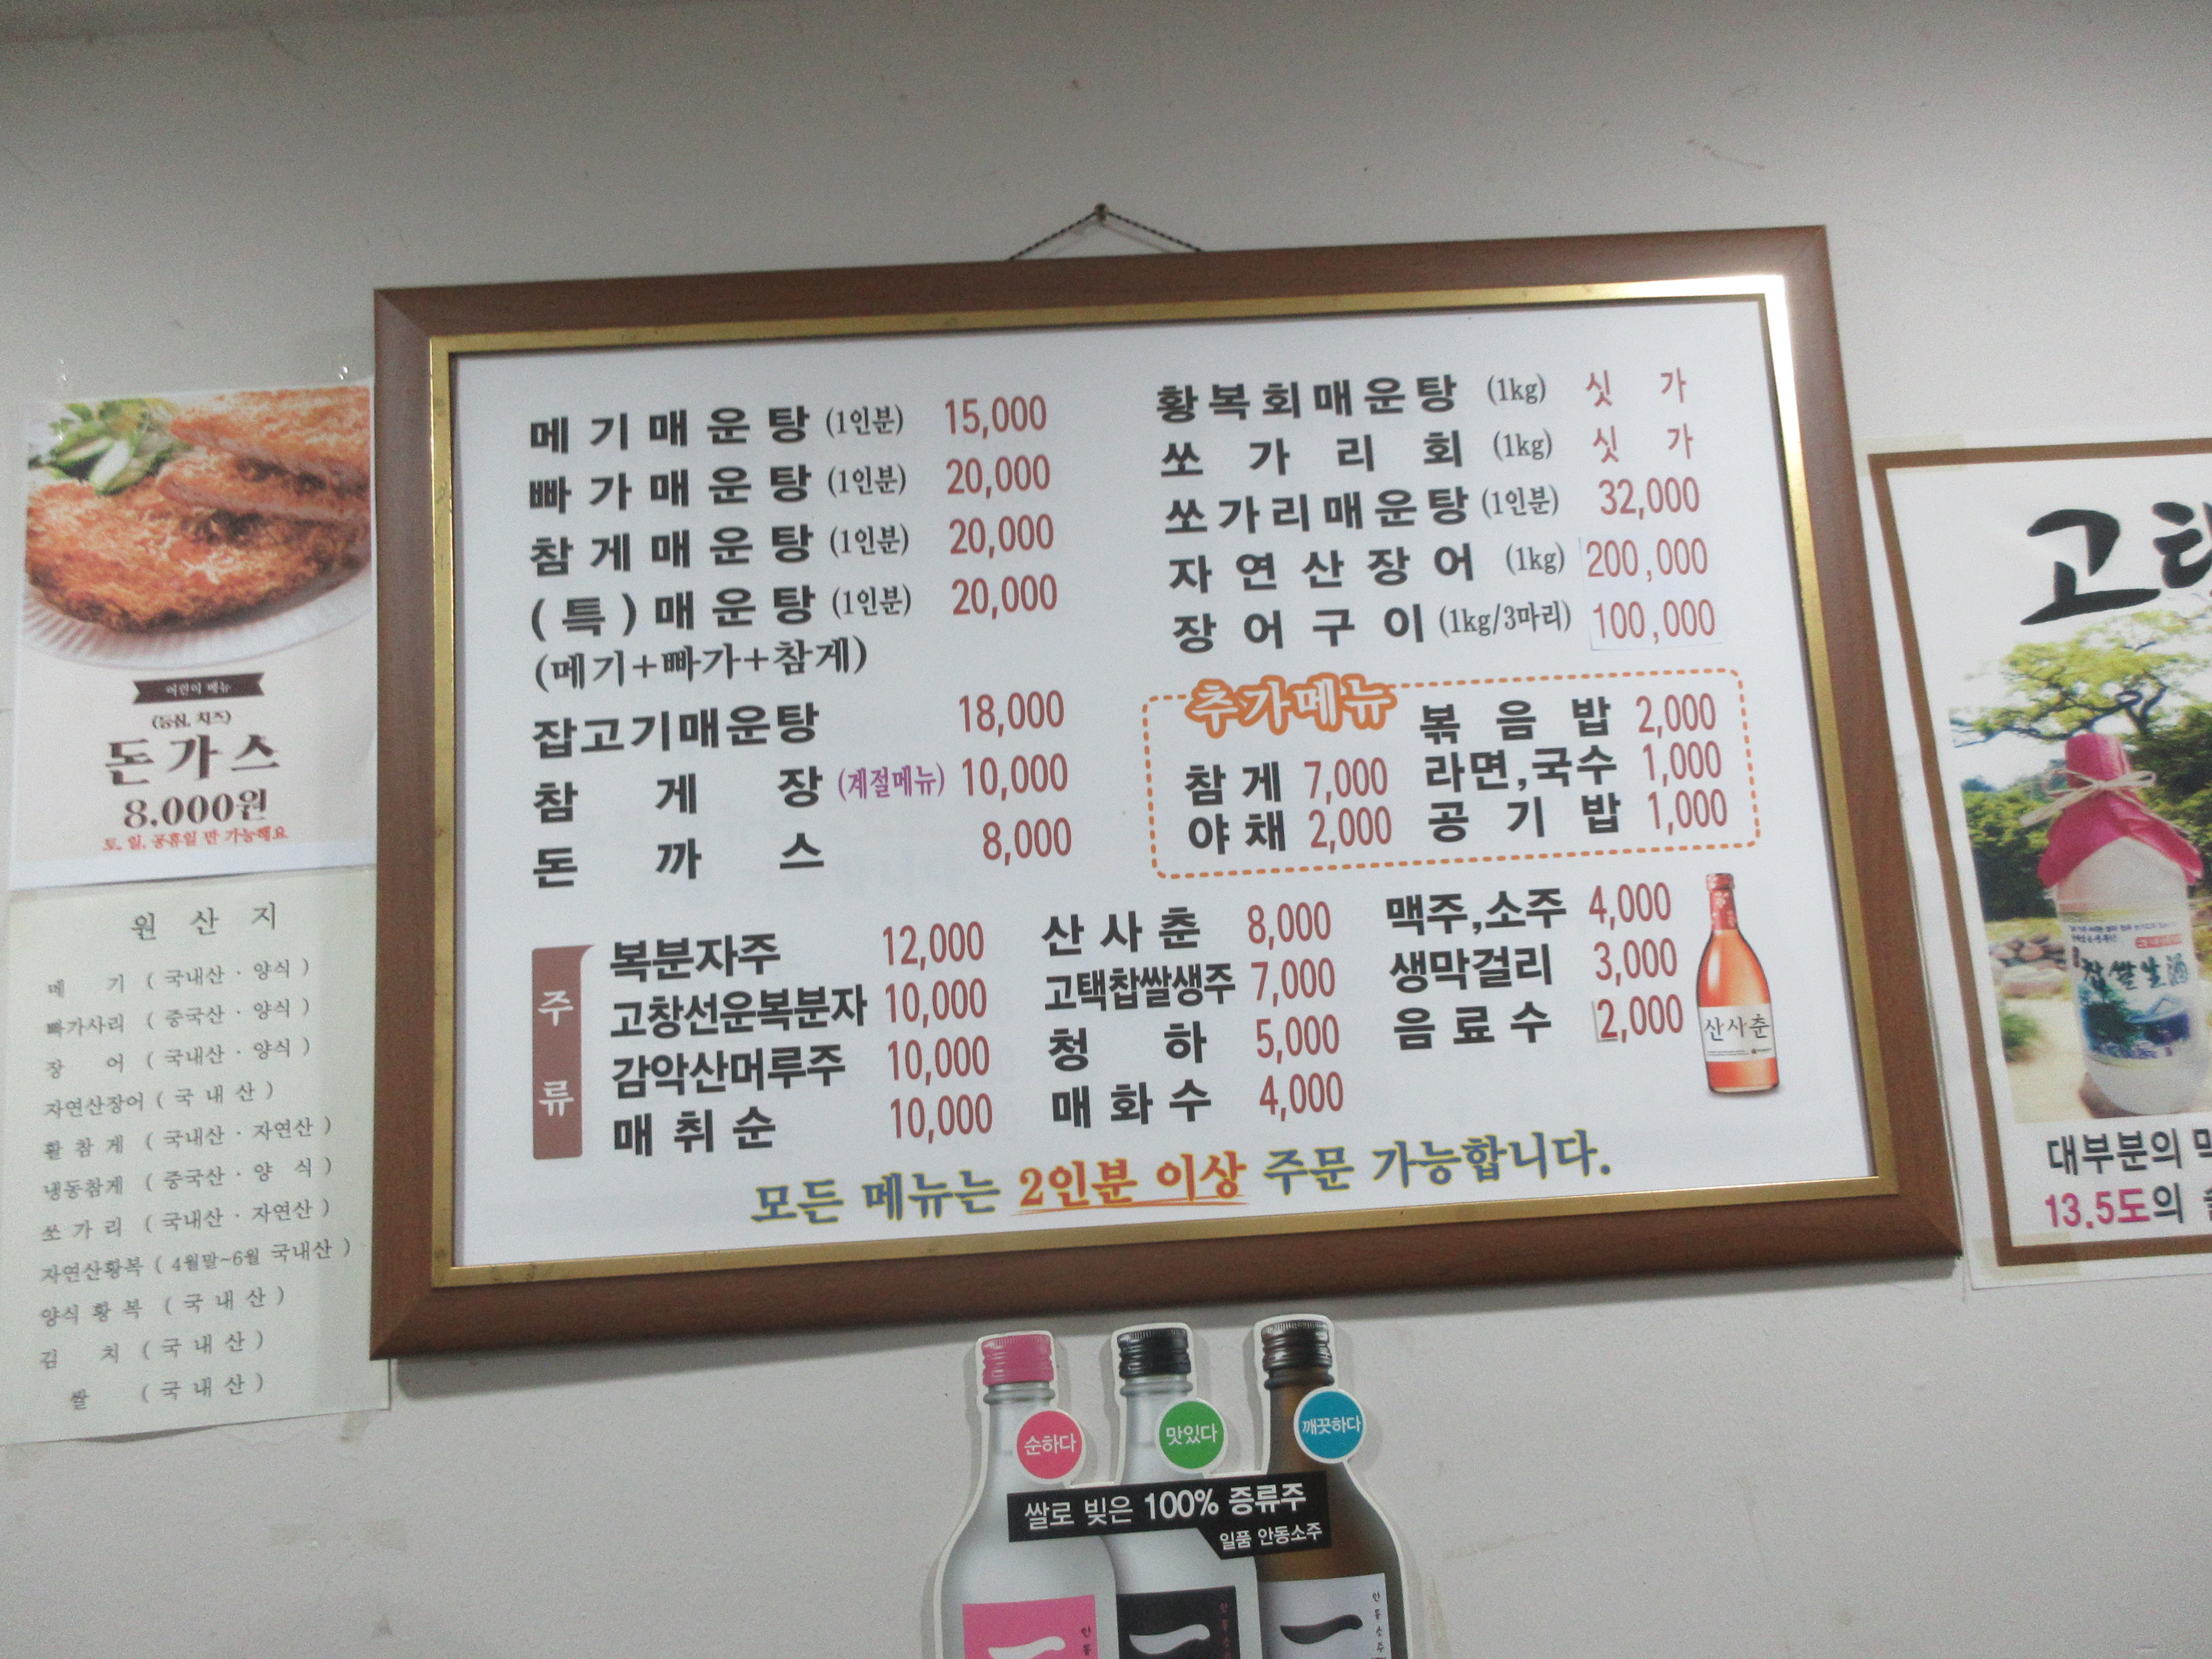 메기매운탕 (1인분) 15,000
빠가매운탕 (1인분) 20,000
참게매운탕 (1인분) 20,000
(특)매운탕 (1인분) 20,000
(메기+빠가+참게)
잡고기매운탕 18,000
참게장 (계절메뉴) 10,000
돈까스 8,000
황복회매운탕 (1kg) 싯가
쏘가리회 (1kg) 싯가
쏘가리매운탕 (1인분) 32,000
자연산장어 (1kg) 200,000
장어구이 (1kg/3마리) 100,000
추가메뉴
참게 7,000
야채 2,000
볶음밥 2,000
라면,국수 1,000
공기밥 1,000
주류
복분자주 12,000
고창선운복분자 10,000
감악산머루주 10,000
매취순 10,000
산사춘 8,000
고택찹쌀생주 7,000
청하 5,000
매화수 4,000
맥주,소주 4,000
생막걸리 3,000
음료수 2,000
산사춘
모든 메뉴는 2인분 이상 주문 가능합니다.
어린이 메뉴
(등심, 치즈)
돈가스
8,000원
토, 일, 공휴일 만 가능해요
원산지
메기 (국내산·양식)
빠가사리 (중국산·양식)
장어 (국내산·양식)
자연산장어 (국내산)
활참게 (국내산·자연산)
냉동참게 (중국산·양식)
쏘가리 (국내산·자연산)
자연산황복 (4월말~6월 국내산)
양식황복 (국내산)
김치 (국내산)
쌀 (국내산)
고택
찹쌀生酒
대부분의
13.5도의
순하다
맛있다
깨끗하다
쌀로 빚은 100% 증류주
일품 안동소주
안동소주